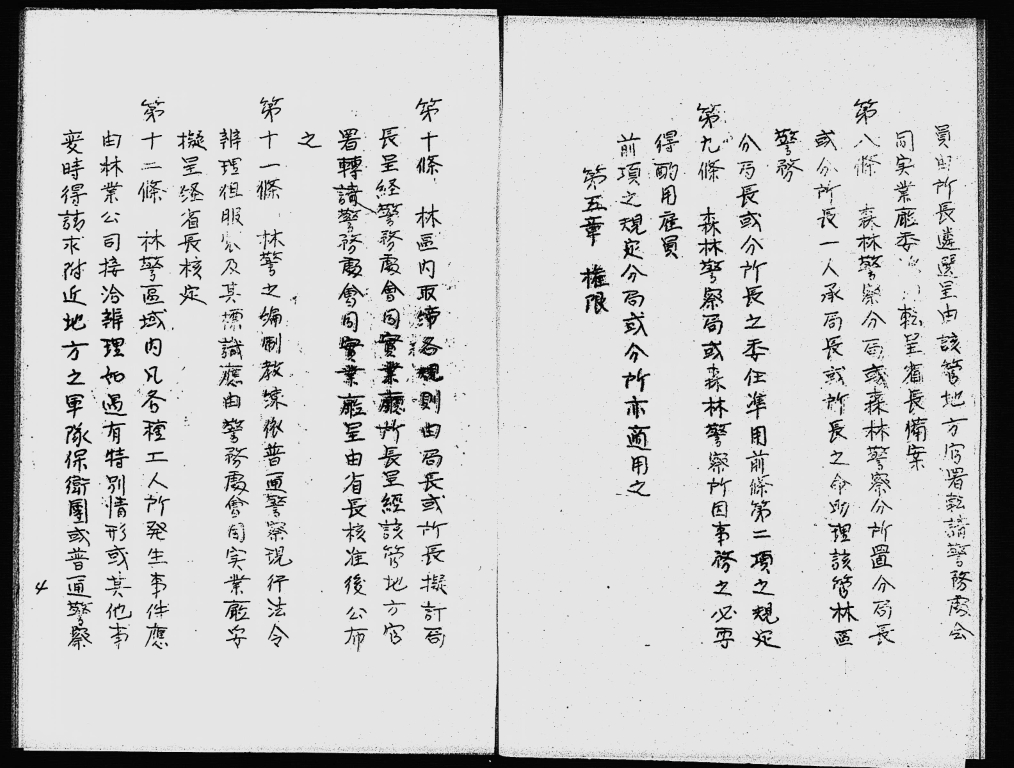 員由所長遴選呈由該管地方官署転請警務處会
同实業廳委 転呈省長備案
第八條 森林警察分局或森林警察分所置分局長
或分所長一人承局長或所長之命助理該管林區
警務
分局長或分所長之委任準用前條第二項之規定
第九條 森林警察局或森林警察所因事務之必要
得酌用雇員
前項之規定分局或分所亦適用之
第五章 權限
第十條 林區内取締各規則由局長或所長擬訂局
長呈経警務處會同實業廳所長呈經該管地方官
署轉請警務處會同實業廳呈由省長核准後公布
之
第十一條 林警之編制教練依普通警察現行法令
辨理但服 及其標識應由警務處會同实業廳妥
擬呈経省長核定
第十二條 林警區域内凡各種工人所発生事件應
由林業公司接洽辨理如遇有特別情形或其他事
変時得請求附近地方之軍隊保衛團或普通警察
4